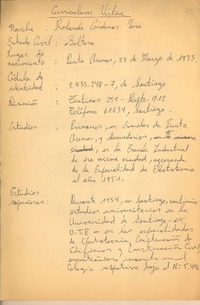 Curriculum Vitae
Nombre : Rolando Cárdenas Vera
Estado Civil : Soltero
Lugar de
nacimiento : Punta Arenas, 23 de Marzo de 1933.
Cédula de
identidad : 2.435.248-7, de Santiago
Dirección : Teatinos 251 - Depto. 912
Teléfono 61034, Santiago.
Estudios : Primarios, en Escuelas de Punta
Arenas, y Secundarios, en
ciudad, en la Escuela Industrial
de esa misma ciudad, egresando
de la Especialidad de Electrotecnia
el año 1951.
Estudios
superiores : Durante 1954, en Santiago, continúo
estudios universitarios en la
Universidad de Santiago - ex
UTE - en las especialidades
de Electrotecnia, Construcción de
Edificios y Construcción Civil,
encontrándome inscrito en el
Colegio respectivo bajo el Nº 5.496